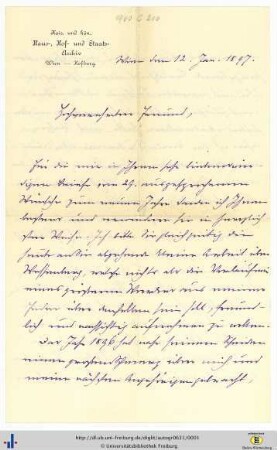 940 C 210
Kais. und kön.
Haus-, Hof- und Staats-
Archiv
Wien — Hofburg
Wien den 12. Jan. 1897.
Hochverehrter Freund,
Für die mir in Ihrem sehr liebenswür-
digen Briefe vom 29. ausgesprochenen
Wünsche zum neuen Jahre danke ich Ihnen
bestens und erwidere sie in herzlich-
ster Weise. Ich bitte Sie gleichzeitig die
heute an Sie abgehende kleine Arbeit über
Wallenstein, welche nichts als die Vorläuferin
eines größeren Werkes aus meiner
Feder über denselben sein soll, freund-
lich und nachsichtig aufnehmen zu wollen.
Das Jahr 1896 hat
über mich und
meine nächsten Angehörigen gebracht.
http://dl.ub.uni-freiburg.de/diglit/autogr0621/0001
© Universitätsbibliothek Freiburg